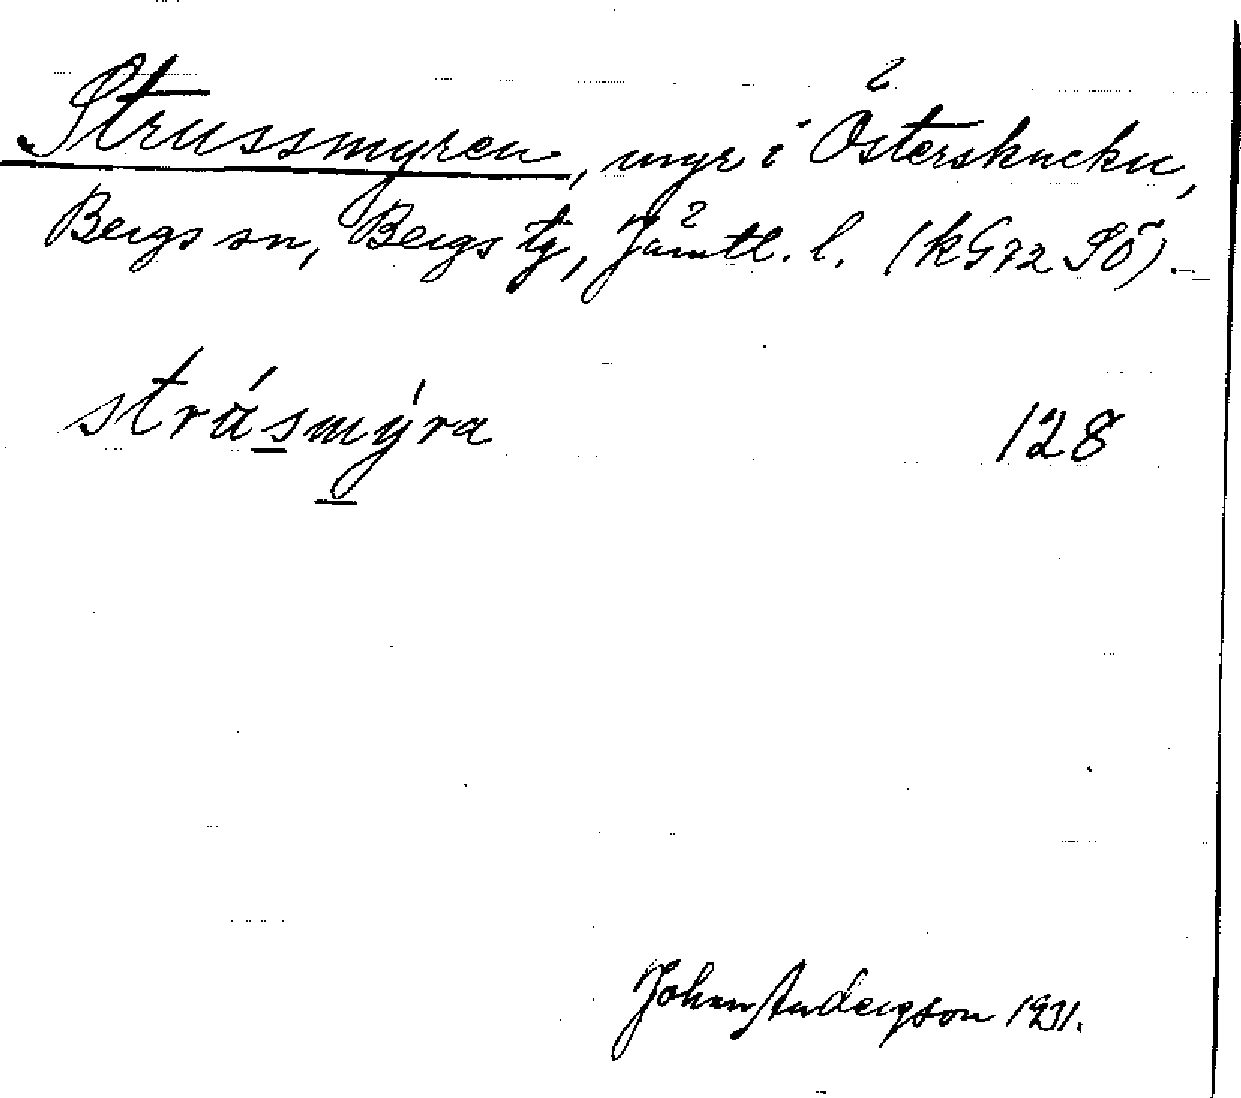 Strussmyren, myr i Österskucku,
Bergs sn, Bergs tg, Jämtl. l. (kG72 SÖ).
strúsmýra 128
Johan Andersson 1931.